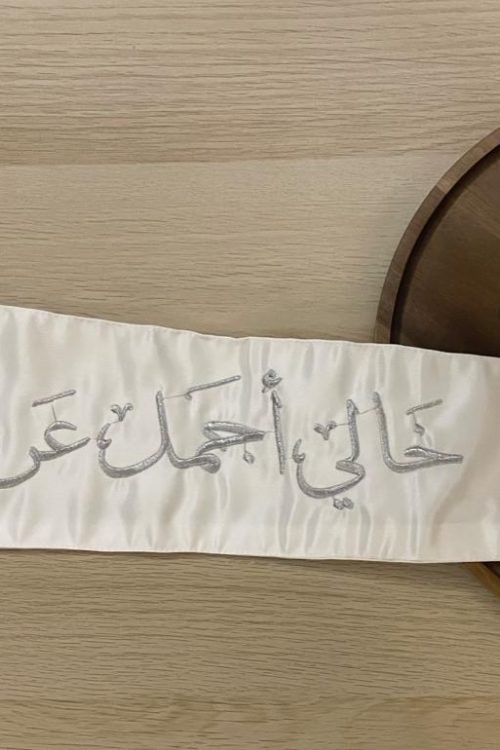 خَالي أجمَل عَر